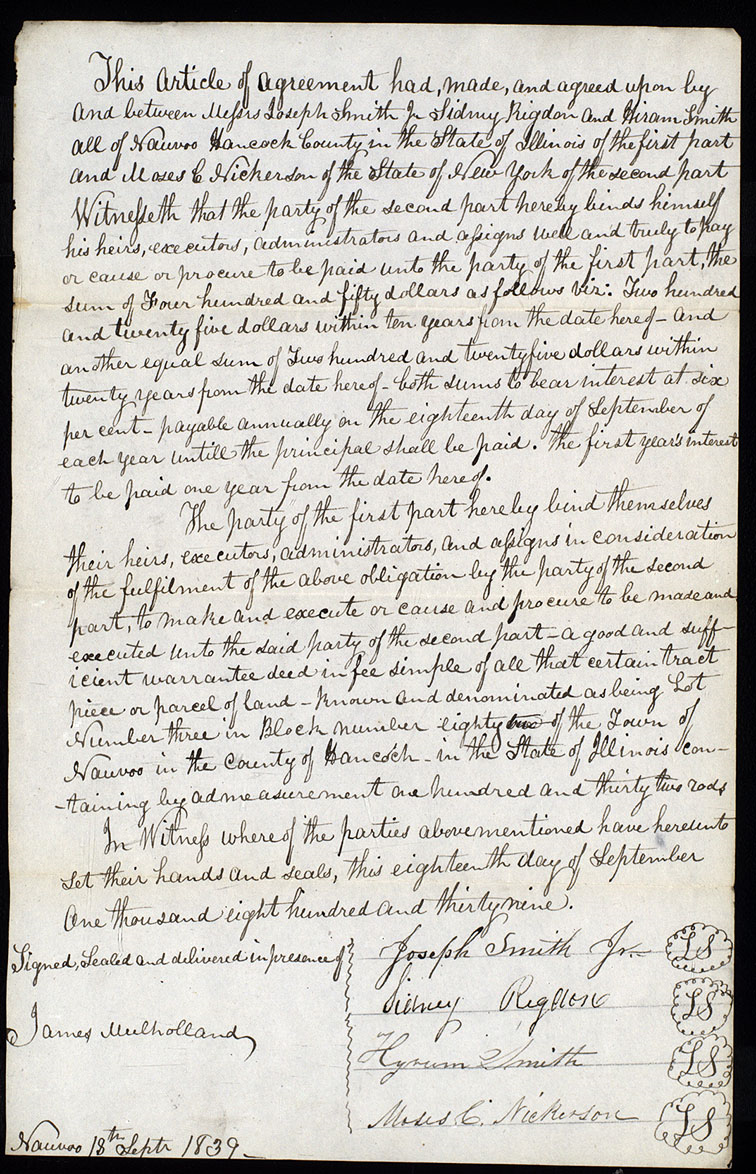 This Article of agreement had, made, and agreed upon by
and between Messrs Joseph Smith Jr Sidney Rigdon and Hiram Smith
all of Nauvoo Hancock County in the State of Illinois of the first part
and Moses C Nickerson of the State of New York of the second part
Witnesseth that the party of the second part hereby binds himself
his heirs, executors, administrators and assigns well and truly to pay
or cause or procure to be paid unto the party of the first part, the
sum of Four hundred and fifty dollars as follows viz: Two hundred
and twenty five dollars within ten years from the date hereof - and
another equal sum of Two hundred and twentyfive dollars within
twenty years from the date hereof - both sums to bear interest at six
per cent - payable annually on the eighteenth day of September of
each year untill the principal shall be paid. the first year's interest
to be paid one year from the date hereof.
The party of the first part hereby bind themselves
their heirs, executors, administrators, and assigns in consideration
of the fulfilment of the above obligation by the party of the second
part, to make and execute or cause and procure to be made and
executed unto the said party of the second part - a good and suff-
icient warrantee deed in fee simple of all that certain tract
piece or parcel of land - known and denominated as being Lot
Number three in Block number eighty of the Town of
Nauvoo in the county of Hancock - in the State of Illinois con-
-taining by admeasurement one hundred and thirty two rods
In Witness whereof the parties abovementioned have hereunto
set their hands and seals, this eighteenth day of September
One thousand eight hundred and thirty nine.
Signed, Sealed and delivered in presence of
James Mulholland
Joseph Smith Jr. LS
Sidney Rigdon LS
Hyrum Smith LS
Moses C. Nickerson LS
Nauvoo 18th Septr 1839 -